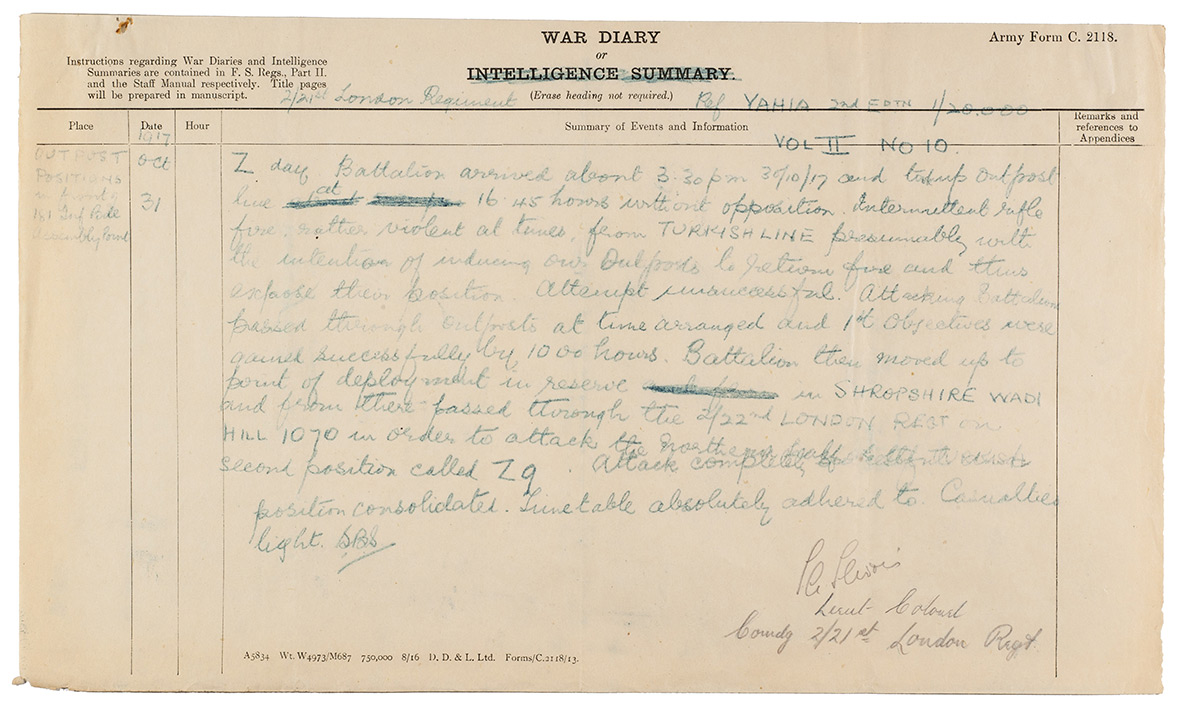 WAR DIARY
or
INTELLIGENCE SUMMARY.
(Erase heading not required.)
Army Form C. 2118.
Instructions regarding War Diaries and Intelligence
Summaries are contained in F. S. Regs., Part II.
and the Staff Manual respectively. Title pages
will be prepared in manuscript.
2/21st London Regiment
Ref YAHIA 2nd EDTN 1/20.000
VOL II NO 10.
Place
Date
Hour
Summary of Events and Information
Remarks and
references to
Appendices
1917
OUTPOST
POSITIONS
in front of
181 Inf Bde
Assembly Point
Oct
31
Z day. Battalion arrived about 3.30pm 30/10/17 and took up Outpost
line at 16.45 hours without opposition. Intermittent rifle
fire, rather violent at times, from TURKISH LINE presumably with
the intention of inducing our Outposts to return fire and thus
expose their position. Attempt unsuccessful. Attacking Battalion
passed through outposts at time arranged and 1st Objectives were
gained successfully by 1000 hours. Battalion then moved up to
point of deployment in reserve in SHROPSHIRE WADI
and from there passed through the 2/22nd LONDON REGT on
HILL 1070 in order to attack the Northern half
second position called Z9. Attack completely
position consolidated. Timetable absolutely adhered to. Casualties
light.
Lieut-Colonel
Comdg 2/21st London Regt.
A5834 Wt. W4973/M687 750,000 8/16 D. D. & L. Ltd. Forms/C.2118/13.